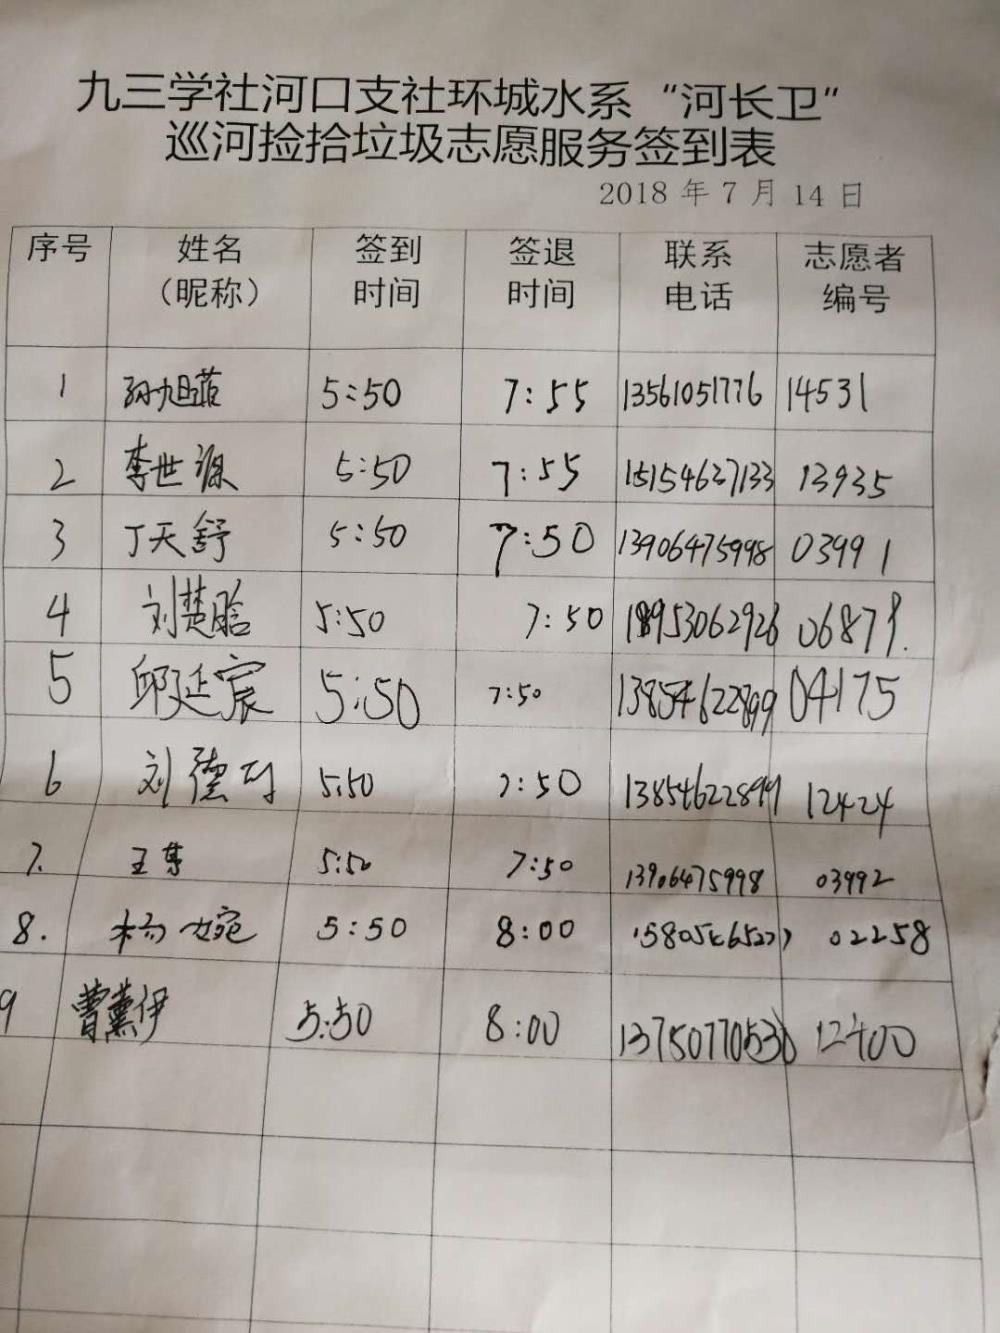 九三学社河口支社环城水系“河长卫”
巡河捡拾垃圾志愿服务签到表
2018 年 7 月 14 日
序号 姓名（昵称） 签到时间 签退时间 联系电话 志愿者编号
1 孙旭菲 5:50 7:55 13561051776 14531
2 李世源 5:50 7:55 15154637133 13935
3 丁天舒 5:50 7:50 13906475998 03991
4 刘楚晗 5:50 7:50 18953062926 06879.
5 邱延宸 5:50 7:50 13854622899 04175
6 刘德 5:50 7:50 13854622899 12424
7. 王 5:50 7:50 13906475998 03992
8. 杨婉 5:50 8:00 02258
9 曹薰伊 5:50 8:00 12400